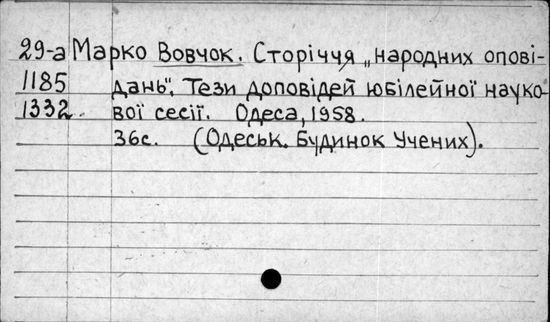 29-а Марко Вовчок. Сторіччя „народних опові-
1185 дань". Тези доповідей ювілейної науко-
1332. вої сесії. Одеса, 1958.
36с. (Одеськ. Будинок Учених).